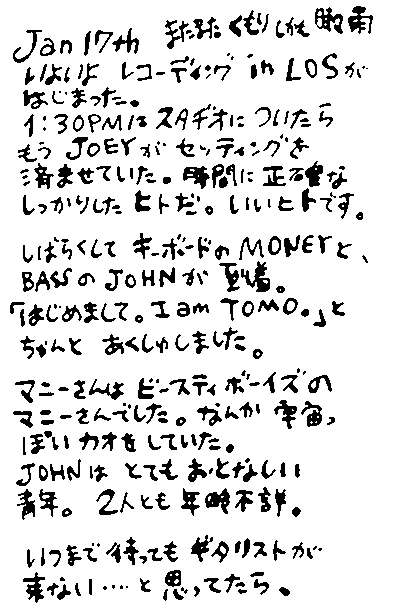 Jan 17th またまた くもり しかも 時々雨
いよいよ レコーディング in LOSが
はじまった。
1:30PMに スタヂオに ついたら
もう JOEYが セッティングを
済ませていた。時間に 正確な
しっかりした ヒトだ。いいヒトです。
しばらくして キーボードの MONEYと、
BASSの JOHNが 到着。
「はじめまして。I am TOMO。」と
ちゃんと あくしゅしました。
マニーさんは ビースティボーイズの
マニーさんでした。なんか 宇宙っ
ぽい カオをしていた。
JOHNは とても おとなしい
青年。 2人とも 年齢不詳。
いつまで 待っても ギタリストが
来ない…と 思ってたら。